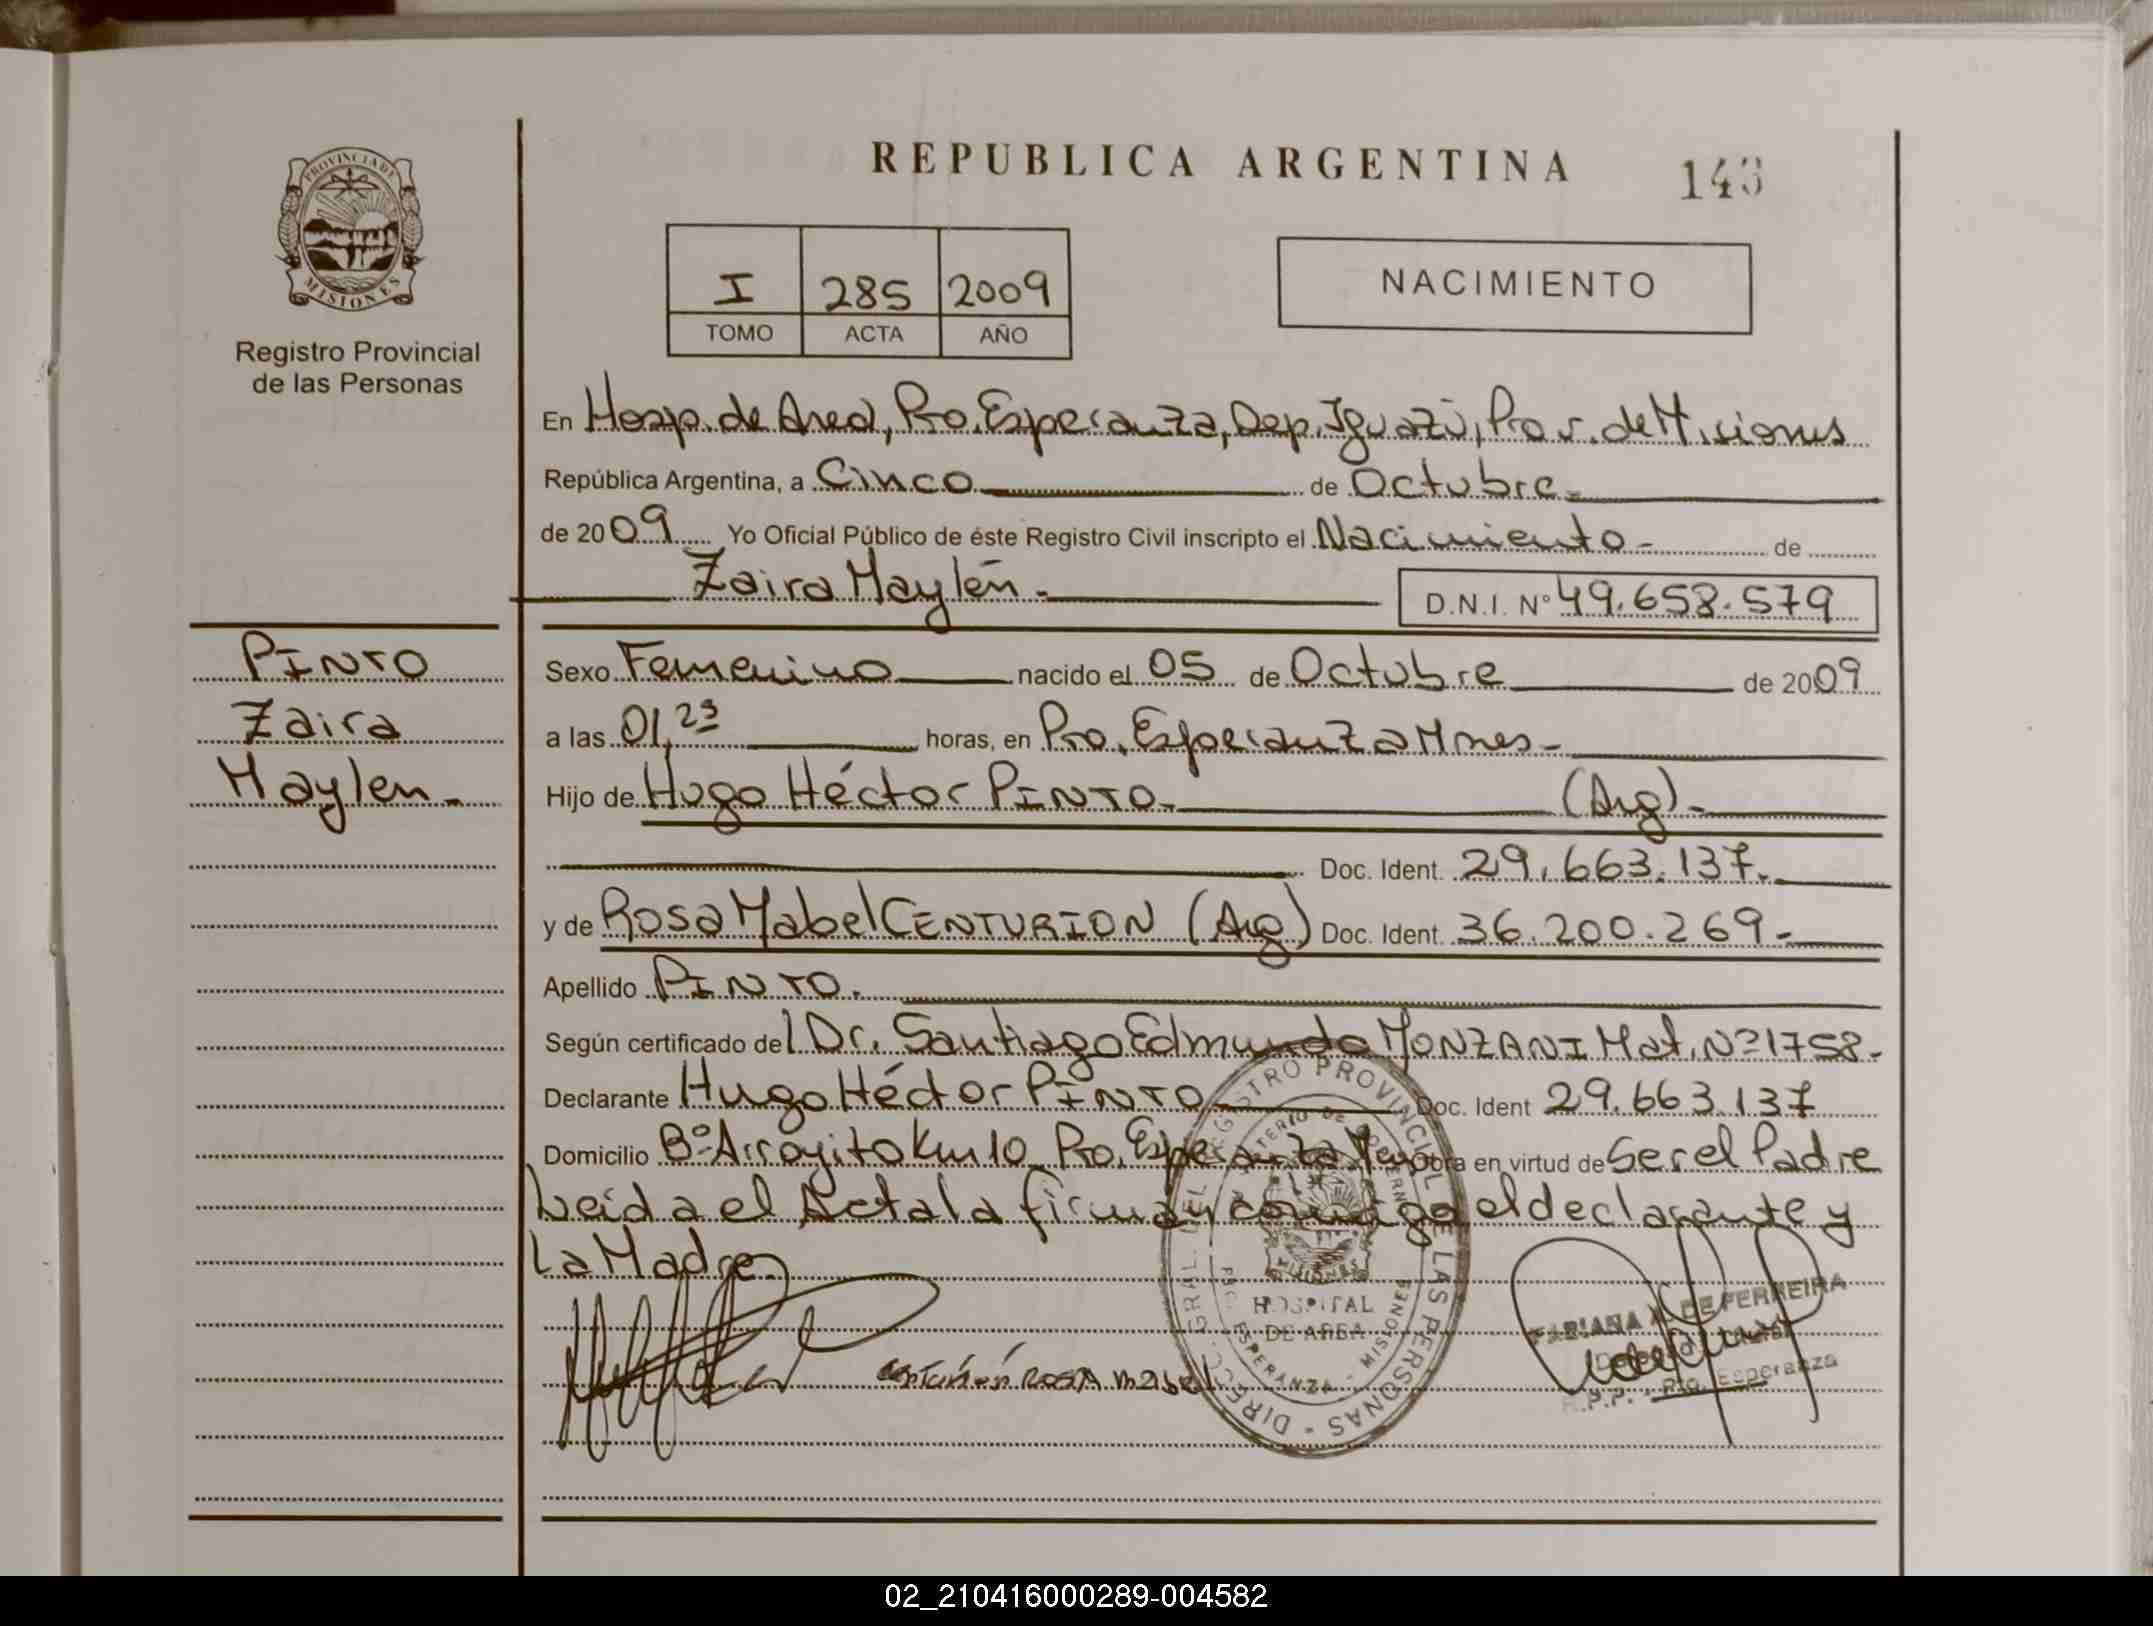 REPUBLICA ARGENTINA
143
PROVINCIA DE
MISIONES
Registro Provincial
de las Personas
I 285 2009
TOMO ACTA AÑO
NACIMIENTO
En Hosp. de Area, Pto. Esperanza, Dep. Iguazú, Prov. de Misiones
República Argentina, a Cinco de Octubre.-
de 2009 Yo Oficial Público de éste Registro Civil inscripto el Nacimiento- de
Zaira Maylén.-
D.N.I. Nº 49.658.579
PINTO
Zaira
Maylen.-
Sexo Femenino nacido el 05 de Octubre de 2009
a las 01,23 horas, en Pto. Esperanza Mnes.-
Hijo de Hugo Héctor PINTO.- (Arg).-
Doc. Ident. 29.663.137.-
y de Rosa Mabel CENTURION (Arg) Doc. Ident. 36.200.269.-
Apellido PINTO.
Según certificado del Dr. Santiago Edmundo MONZANI Mat. Nº 1758.-
Declarante Hugo Héctor PINTO Doc. Ident 29.663.137
Domicilio Bº Arroyito Km 10 Pto. Esperanza Obra en virtud de Ser el Padre
Leida el Acta la firman conmigo el declarante y
La Madre.
Rosa Mabel
DIREC. GRAL. DEL REGISTRO PROVINCIAL DE LAS PERSONAS
MINISTERIO DE GOBIERNO
MISIONES
HOSPITAL
DE AREA
ESPERANZA - MISIONES
FABIANA DE FERREIRA
R.P.P. - Pto. Esperanza
02_210416000289-004582